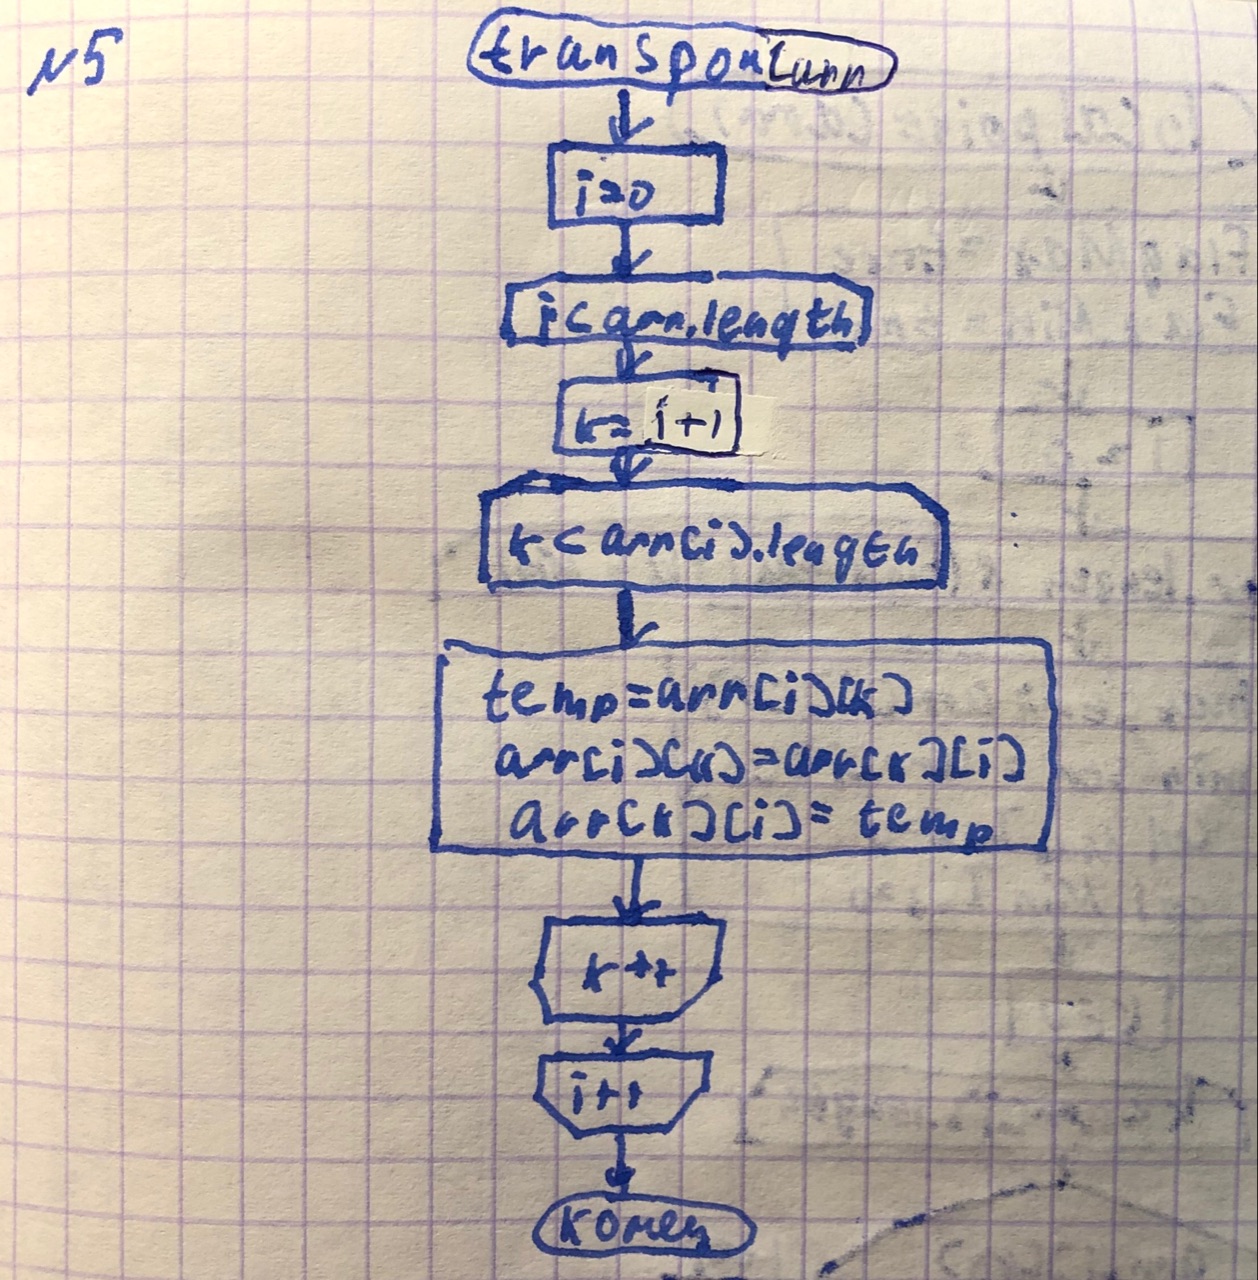 №5
transpon(arr)
i=0
i<arr.length
k= i+1
k<arr[i].length
temp=arr[i][k]
arr[i][k]=arr[k][i]
arr[k][i]= temp
k++
i++
конец